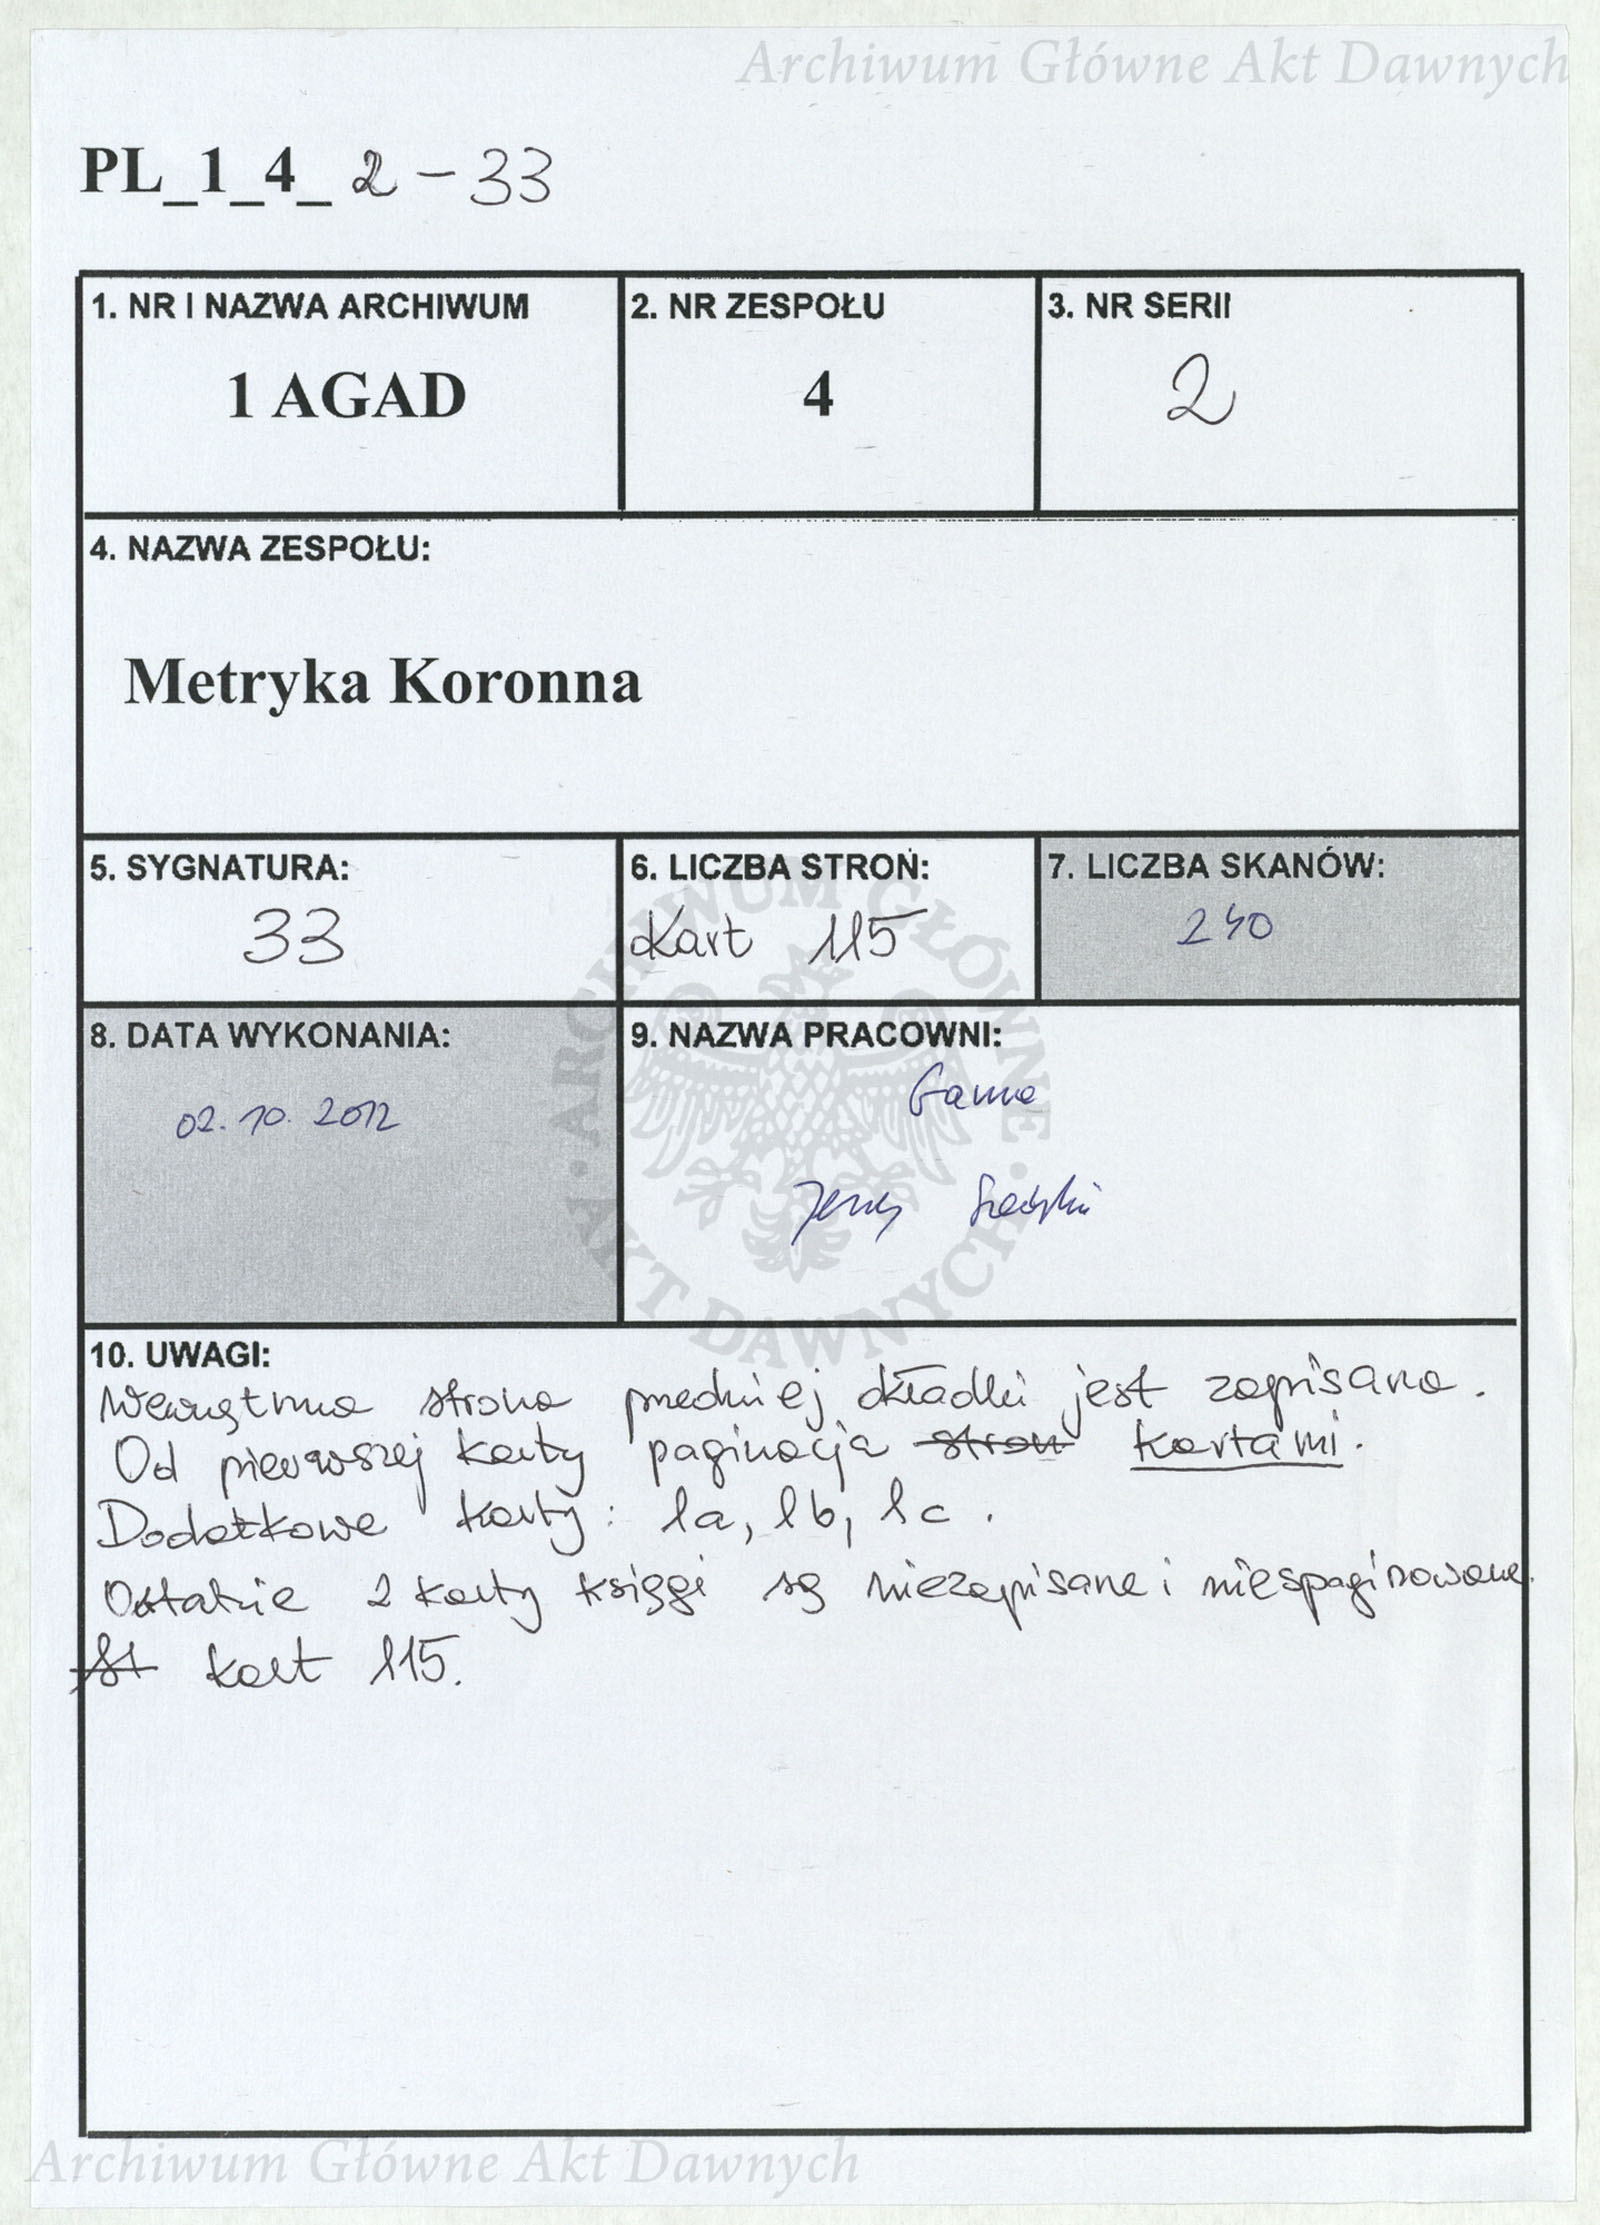 Archiwum Główne Akt Dawnych
PL_1_4_ 2 - 33
1. NR I NAZWA ARCHIWUM
1 AGAD
2. NR ZESPOŁU
4
3. NR SERII
2
4. NAZWA ZESPOŁU:
Metryka Koronna
5. SYGNATURA:
33
6. LICZBA STRON:
Kart 115
7. LICZBA SKANÓW:
240
8. DATA WYKONANIA:
02.10.2012
9. NAZWA PRACOWNI:
Gamma
Jerzy
ARCHIWUM GŁÓWNE AKT DAWNYCH
10. UWAGI:
Wewnętrzna strona przedniej okładki jest zapisana.
Od pierwszej karty paginacja stron kartami.
Dodatkowe karty: 1a, 1b, 1c.
Ostatnie 2 karty księgi są niezapisane i niespaginowane.
St kart 115.
Archiwum Główne Akt Dawnych